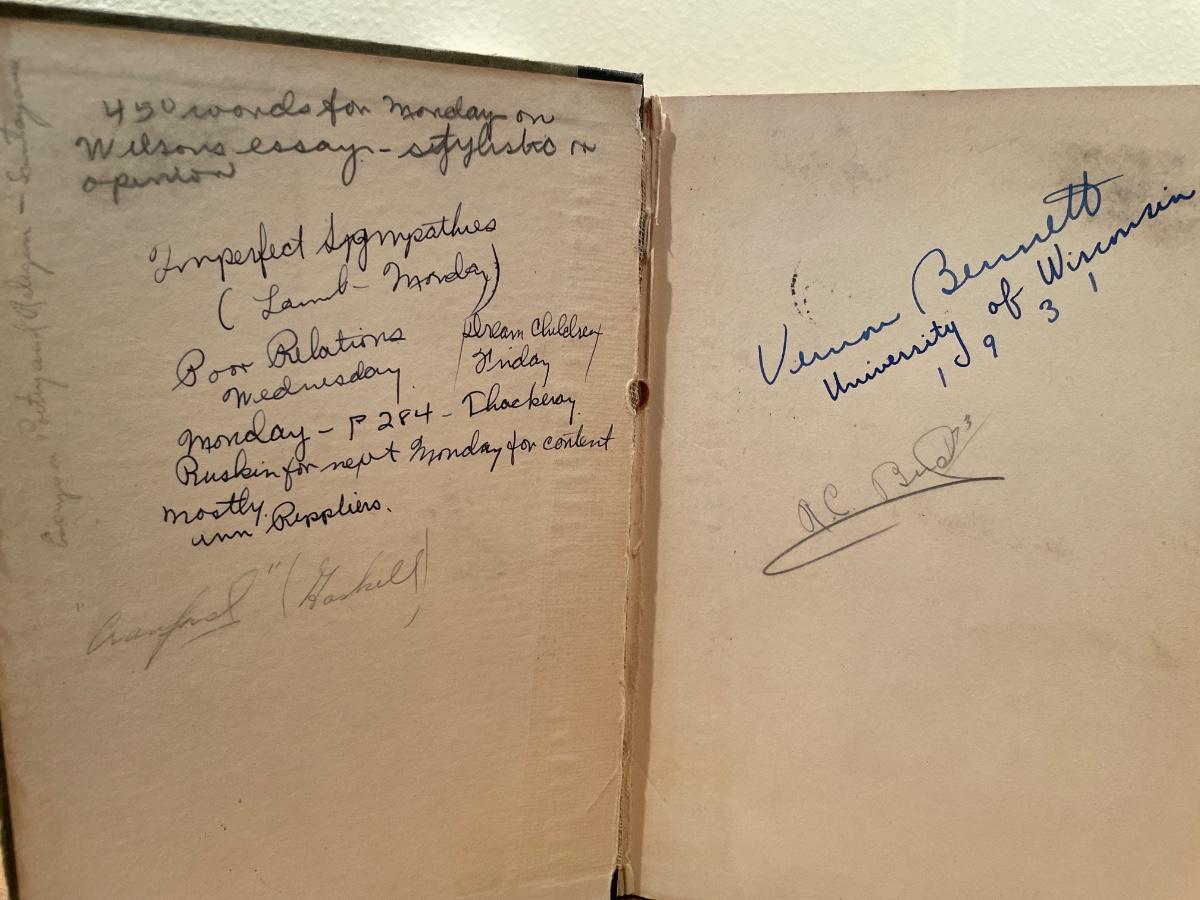 450 words for Monday on
Wilsons essay - stylistic or
opinion
Imperfect Sympathies
(Lamb - Monday)
Poor Relations
Wednesday
Dream Children
Friday
Monday - P 284 - Thackeray.
Ruskin for next Monday for content
mostly.
Ann Reppliers.
"Cranford" (Gaskell)
Essays on Poetry and Religion - Santayana
Vernon Bennett
University of Wisconsin
1931
A.C.